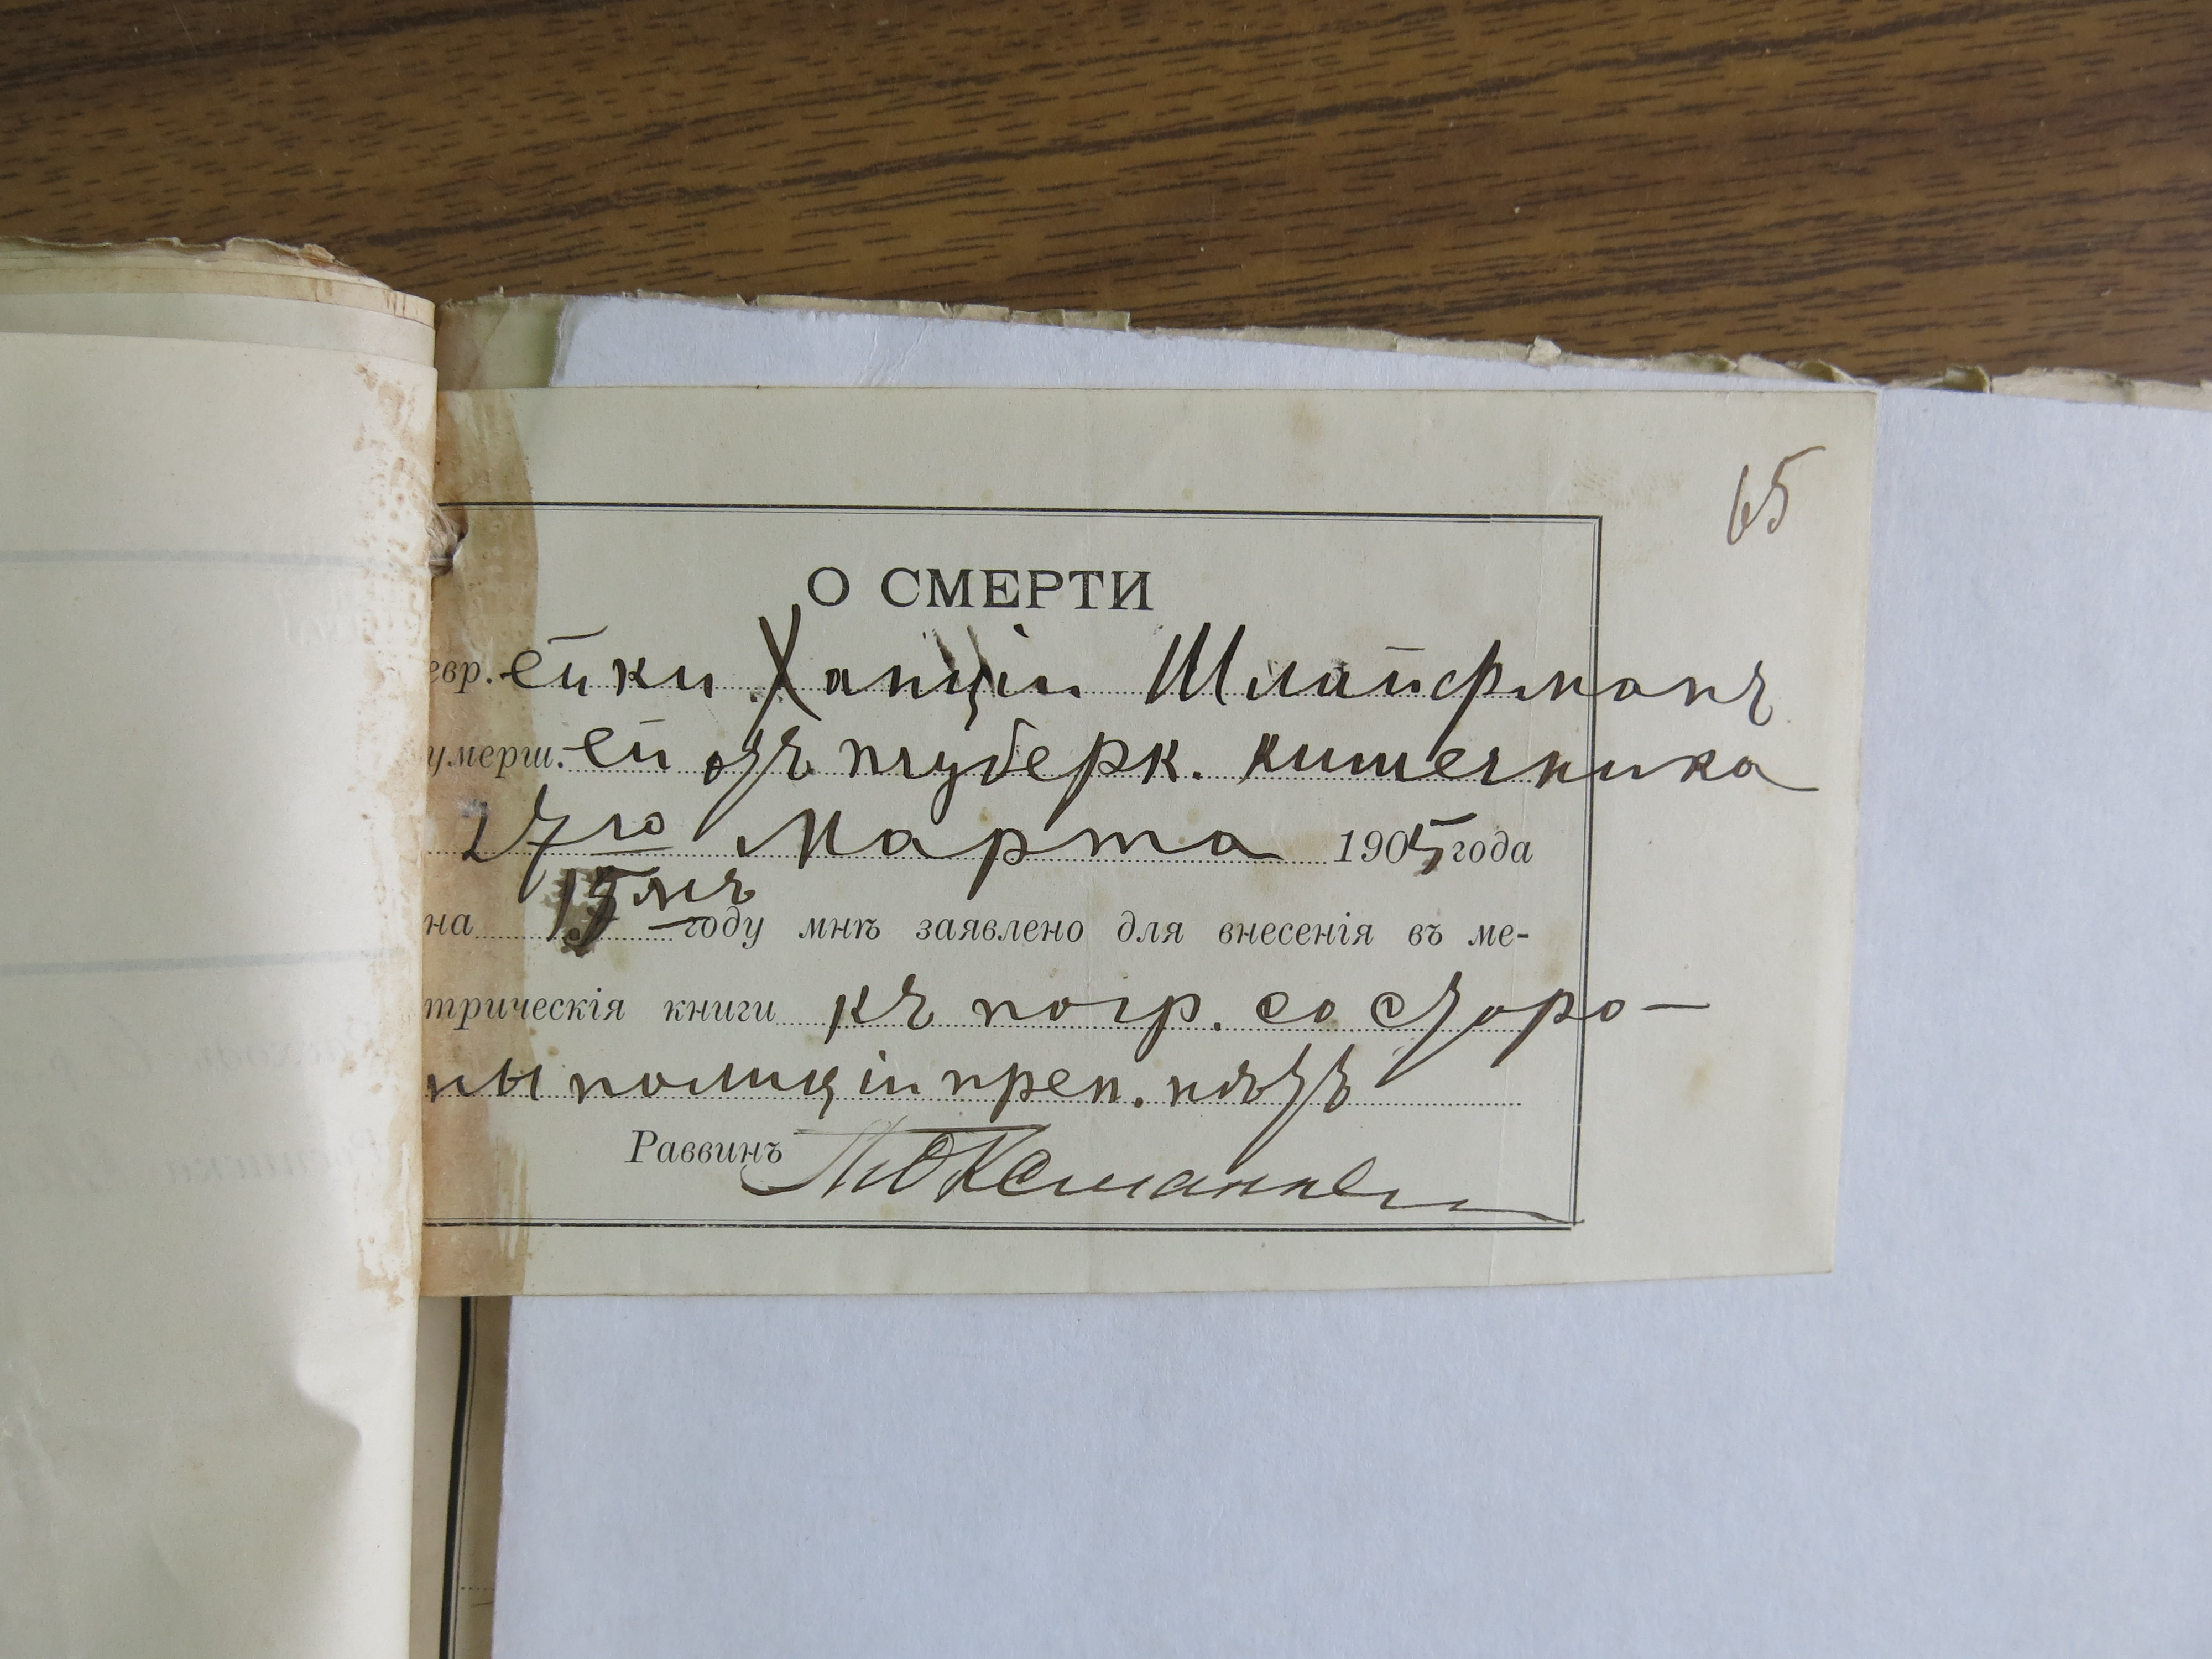 65
О СМЕРТИ
евр. ейки Ханціи Шлайфманъ
умерш. ей отъ туберк. кишечника
27го Марта 1905 года
на 15мъ году мнѣ заявлено для внесенія въ ме-
трическія книги къ погр. со сторо-
ны полиціи преп. нѣтъ
Раввинъ